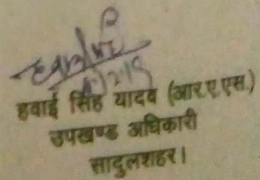 हवाई सिंह यादव (आर.ए.एस.)
उपखण्ड अधिकारी
सादुलशहर।